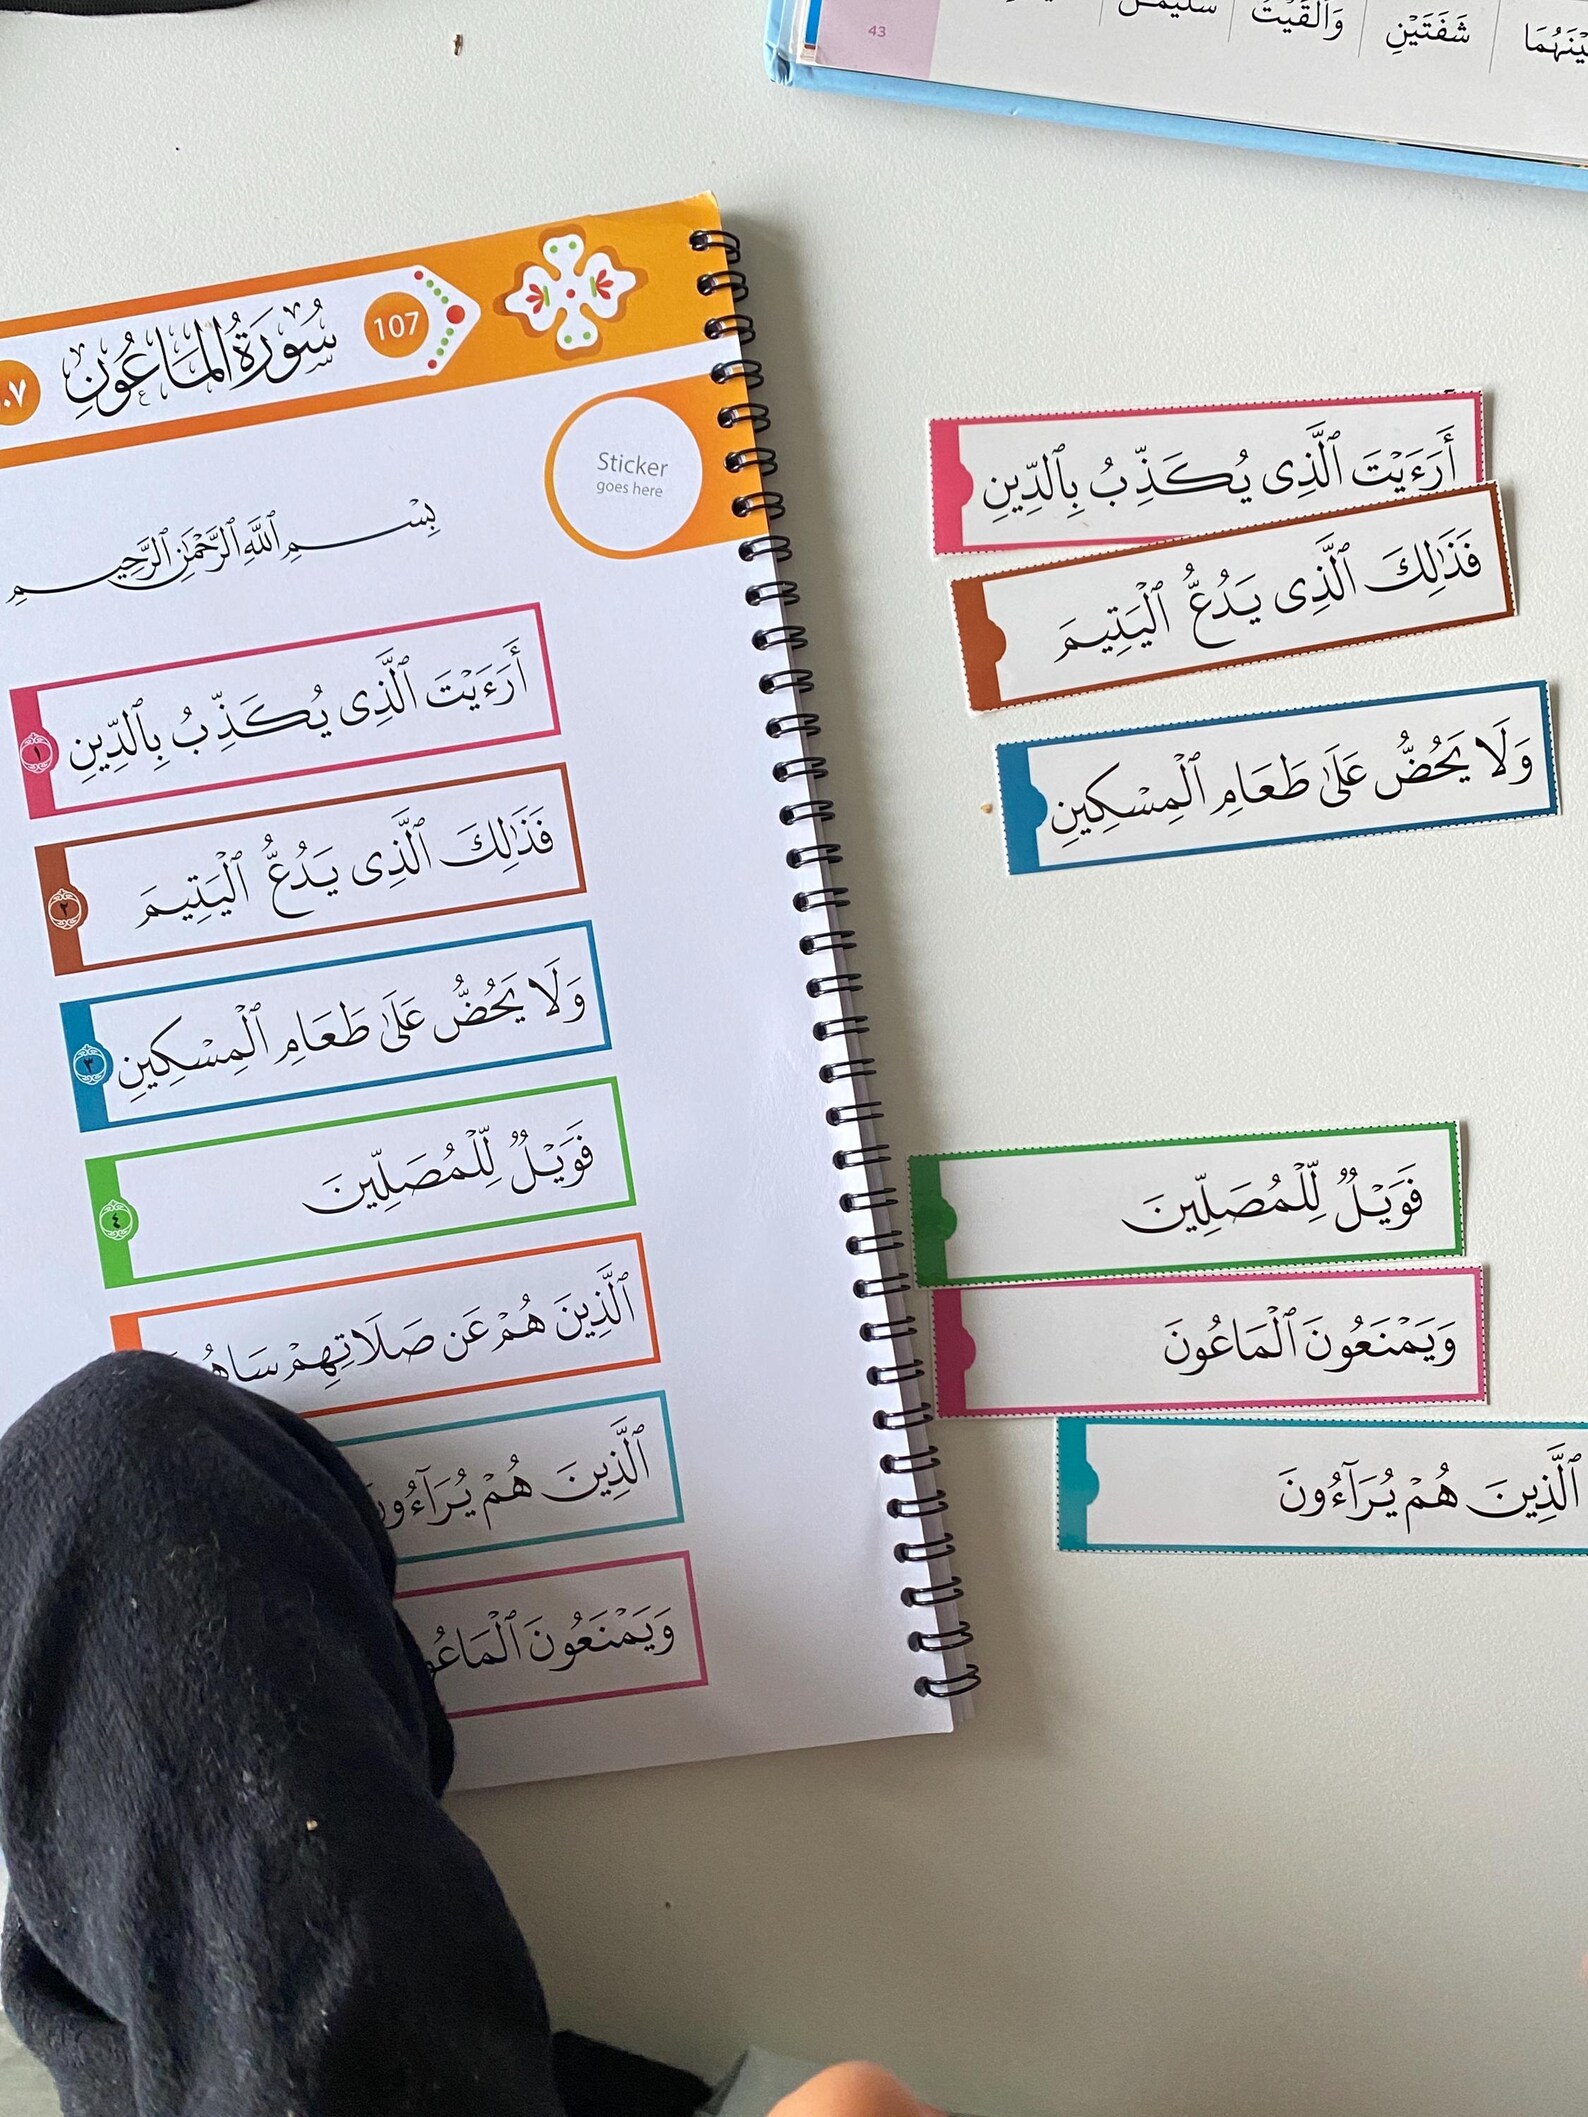 سُورَةُ المَاعُونِ 107
Sticker
goes here
بِسْمِ ٱللَّهِ ٱلرَّحْمَٰنِ ٱلرَّحِيمِ
أَرَءَيْتَ ٱلَّذِى يُكَذِّبُ بِٱلدِّينِ ١
فَذَٰلِكَ ٱلَّذِى يَدُعُّ ٱلْيَتِيمَ ٢
وَلَا يَحُضُّ عَلَىٰ طَعَامِ ٱلْمِسْكِينِ ٣
فَوَيْلٌ لِّلْمُصَلِّينَ ٤
ٱلَّذِينَ هُمْ عَن صَلَاتِهِمْ
ٱلَّذِينَ هُمْ يُرَآءُونَ
وَيَمْنَعُونَ
43
وَأَلْقَيْتُ شَفَتَيْنِ
أَرَءَيْتَ ٱلَّذِى يُكَذِّبُ بِٱلدِّينِ
فَذَٰلِكَ ٱلَّذِى يَدُعُّ ٱلْيَتِيمَ
وَلَا يَحُضُّ عَلَىٰ طَعَامِ ٱلْمِسْكِينِ
فَوَيْلٌ لِّلْمُصَلِّينَ
وَيَمْنَعُونَ ٱلْمَاعُونَ
ٱلَّذِينَ هُمْ يُرَآءُونَ